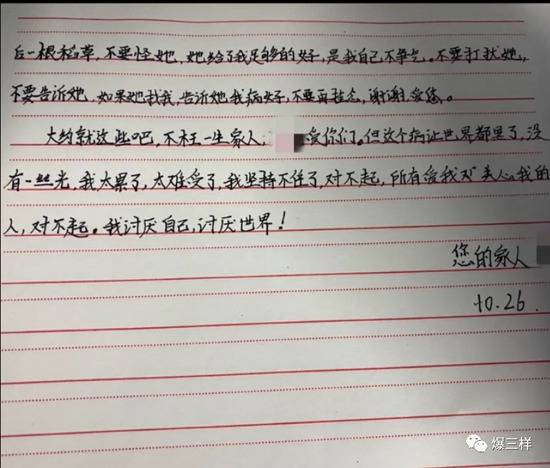 后一根稻草,不要怪她,她给了我足够的好,是我自己不争气。不要打扰她,
不要告诉她,如果她找我,告诉她我病好,不要再挂念,谢谢,爱您。
大约就这些吧,不枉一生家人, 爱你们。但这个病让世界都黑了,没
有一丝光,我太累了,太难受了,我坚持不住了,对不起,所有爱我 关心我的
人,对不起。我讨厌自己,讨厌世界!
您的家人
10.26.
爆三样